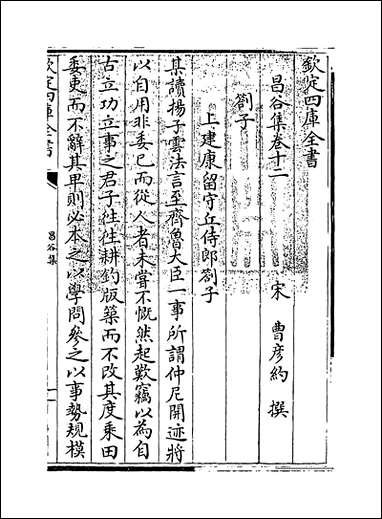 欽定四庫全書
昌谷集卷十二
宋 曹彦約 撰
劄子
上建康留守丘侍郎劄子
某讀揚子雲法言至齊魯大臣一事所謂仲尼開迹將
以自用非委已而從人者未嘗不慨然起歎竊以為自
古立功立事之君子往往耕釣版築而不改其度乘田
委吏而不辭其卑則必本之以學問參之以事勢規模
欽定四庫全書
昌谷集
一